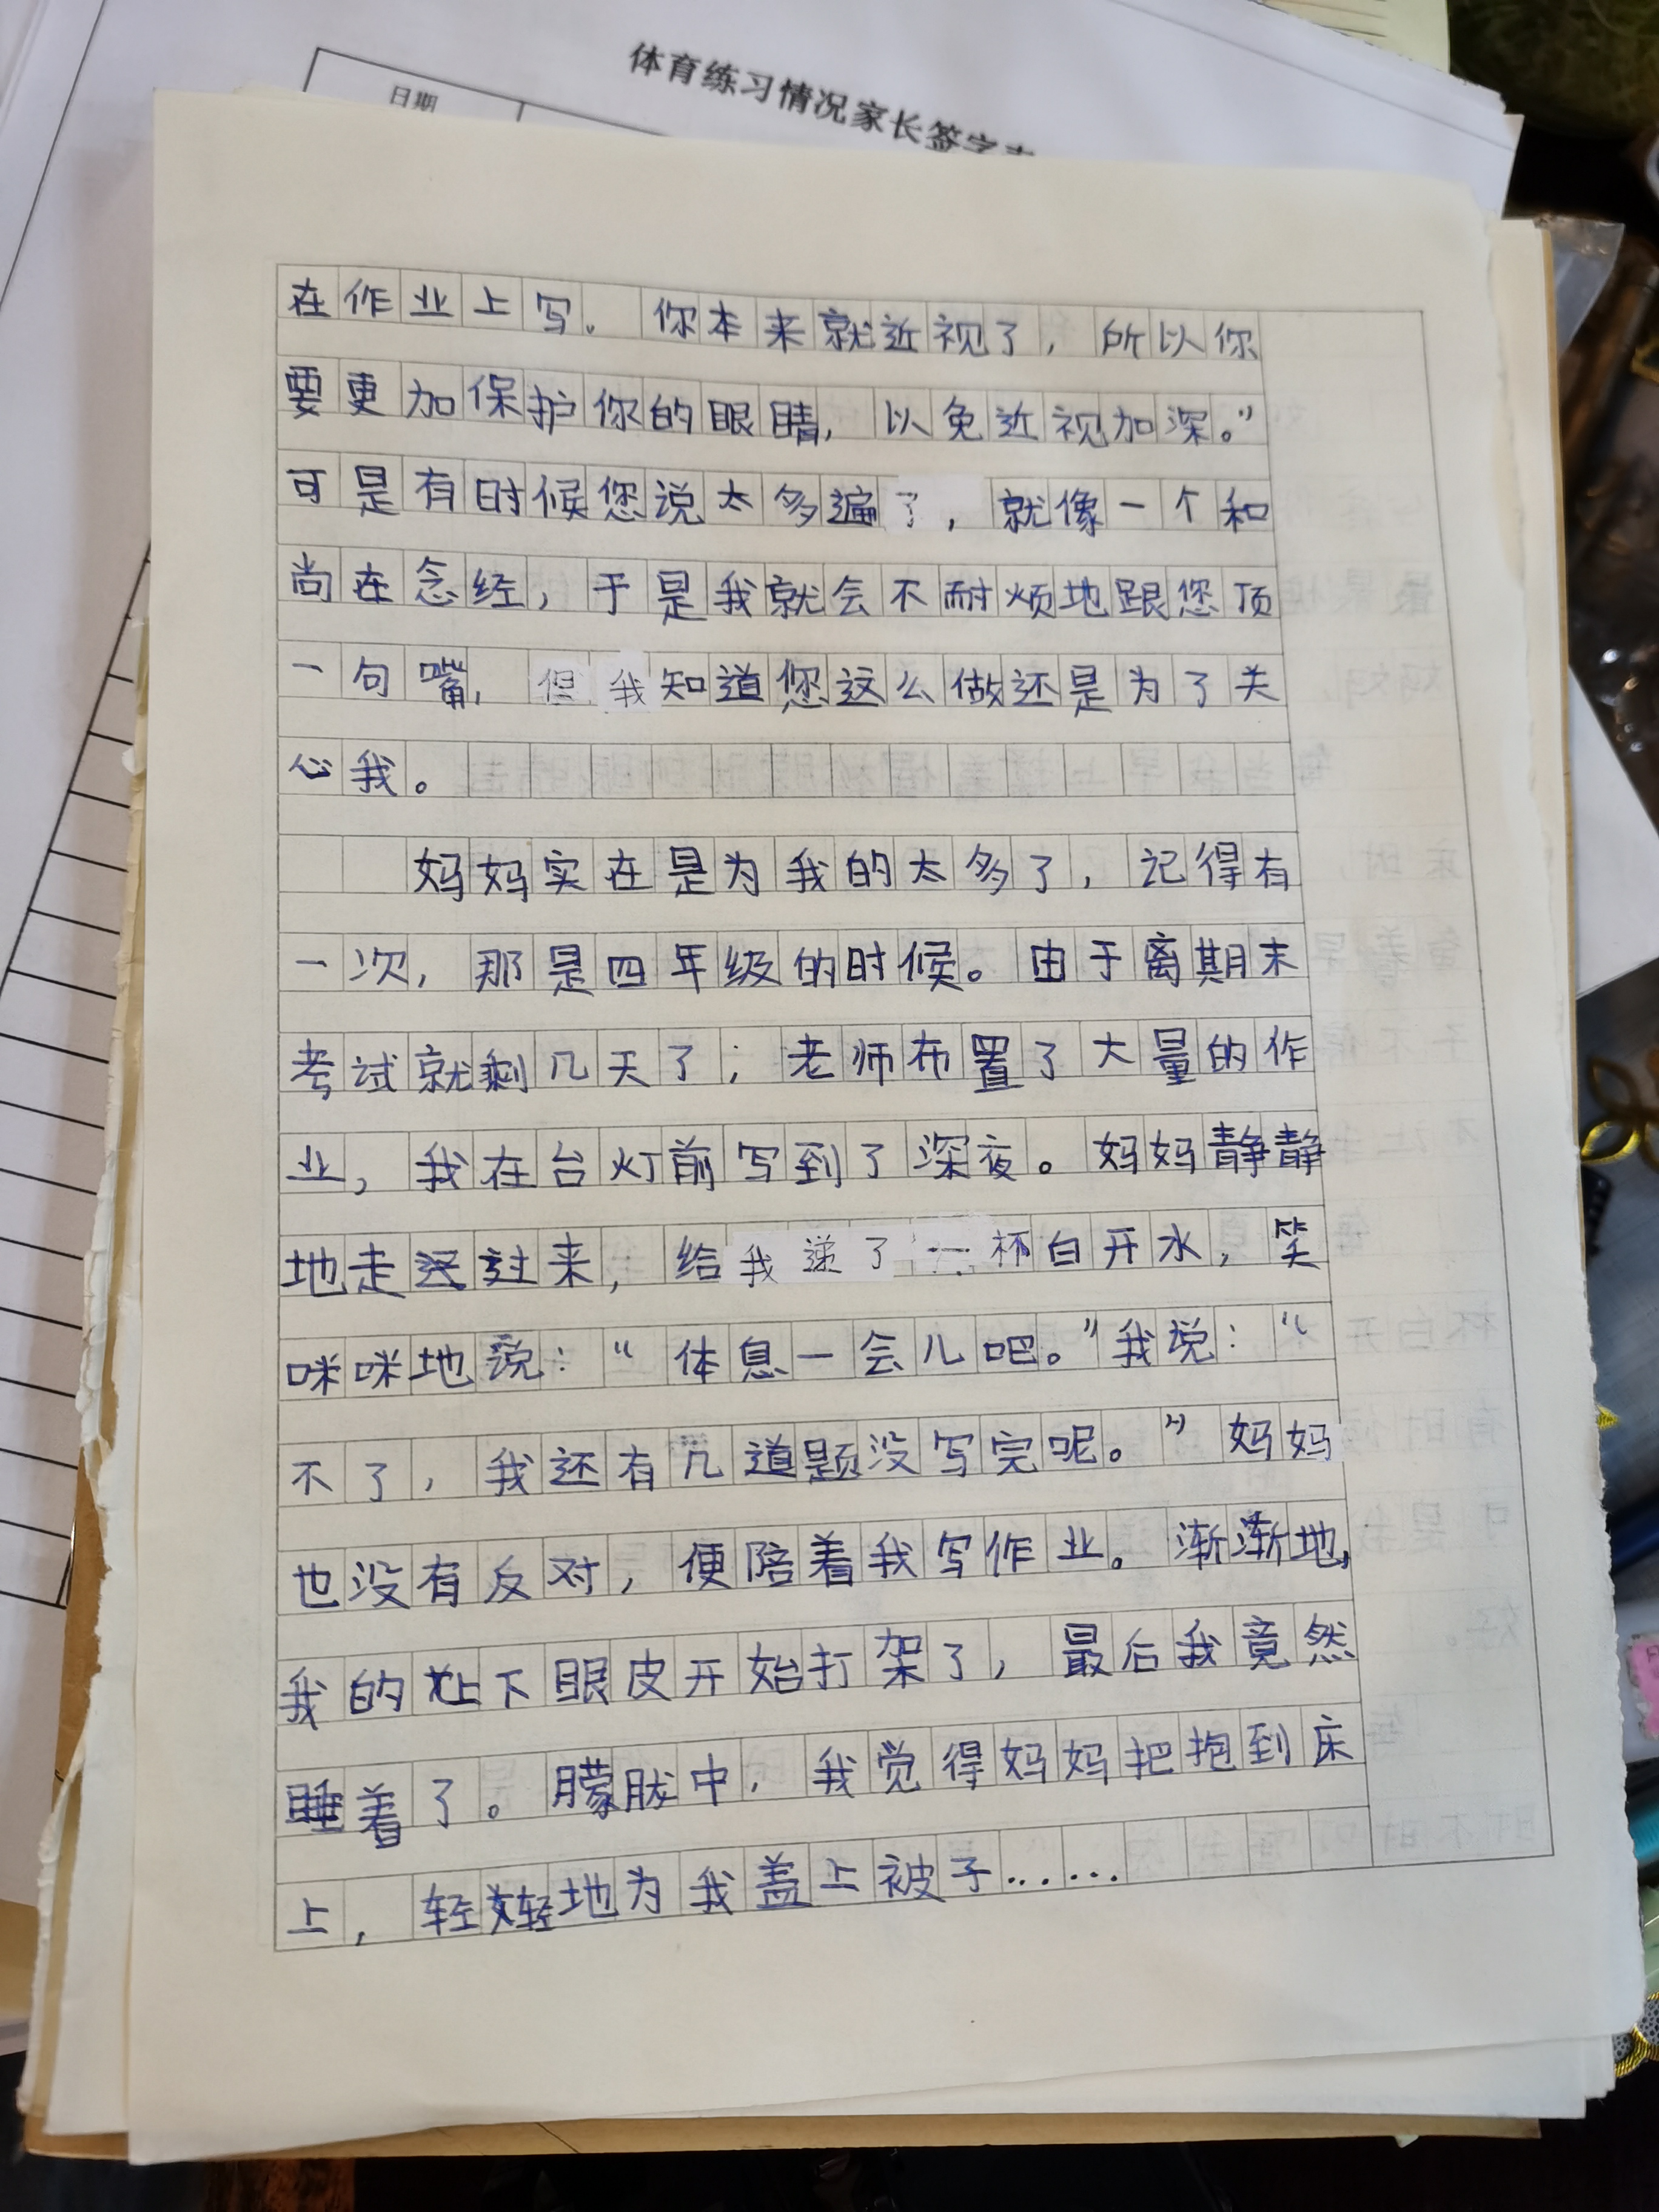 体育练习情况家长签字
日期
在作业上写。你本来就近视了，所以你
要更加保护你的眼睛，以免近视加深。”
可是有时候您说太多遍了，就像一个和
尚在念经，于是我就会不耐烦地跟您顶
一句嘴，但我知道您这么做还是为了关
心我。
妈妈实在是为我的太多了，记得有
一次，那是四年级的时候。由于离期末
考试就剩几天了；老师布置了大量的作
业，我在台灯前写到了深夜。妈妈静静
地走过来，给我递了一杯白开水，笑
咪咪地说：“体息一会儿吧。”我说：“
不了，我还有几道题没写完呢。”妈妈
也没有反对，便陪着我写作业。渐渐地，
我的上下眼皮开始打架了，最后我竟然
睡着了。朦胧中，我觉得妈妈把抱到床
上，轻轻地为我盖上被子……